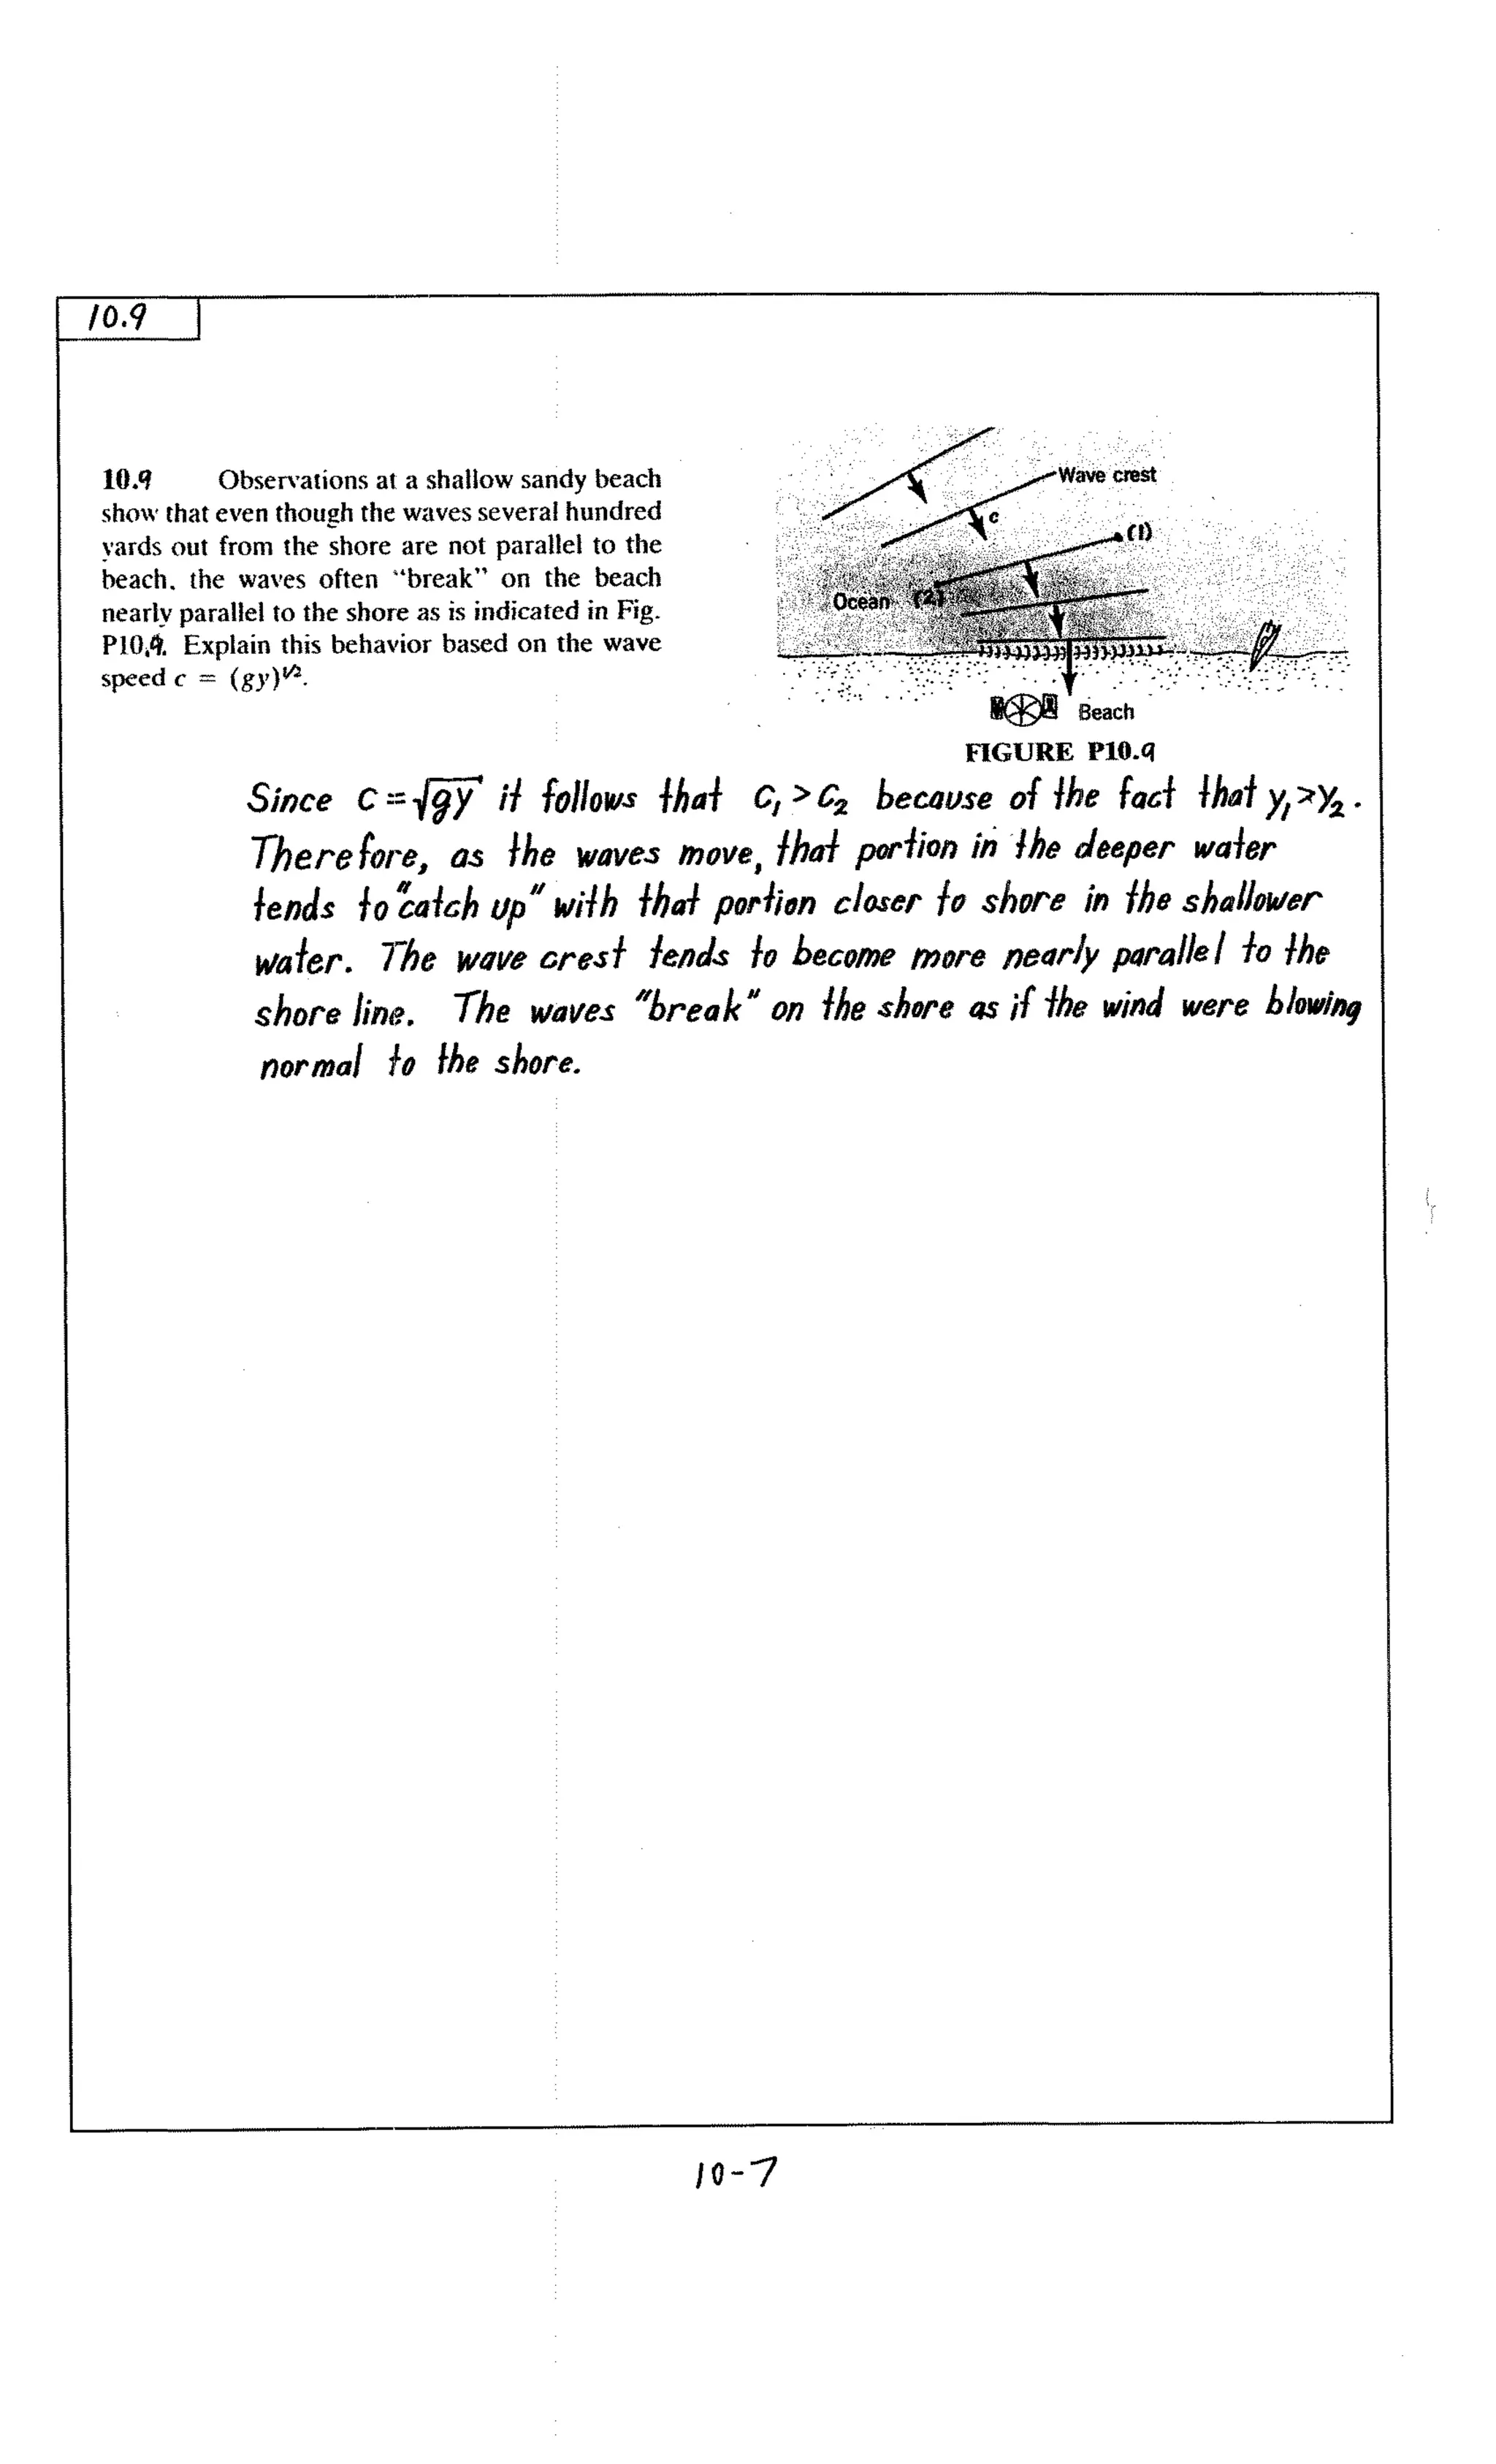 10.9
10.9 Observations at a shallow sandy beach
show that even though the waves several hundred
yards out from the shore are not parallel to the
beach, the waves often "break" on the beach
nearly parallel to the shore as is indicated in Fig.
P10.9. Explain this behavior based on the wave
speed c = (gy)^1/2.
Wave crest
c
(1)
Ocean (2)
Beach
FIGURE P10.9
Since c = √gy it follows that c₁ > c₂ because of the fact that y₁ > y₂.
Therefore, as the waves move, that portion in the deeper water
tends to "catch up" with that portion closer to shore in the shallower
water. The wave crest tends to become more nearly parallel to the
shore line. The waves "break" on the shore as if the wind were blowing
normal to the shore.
10-7